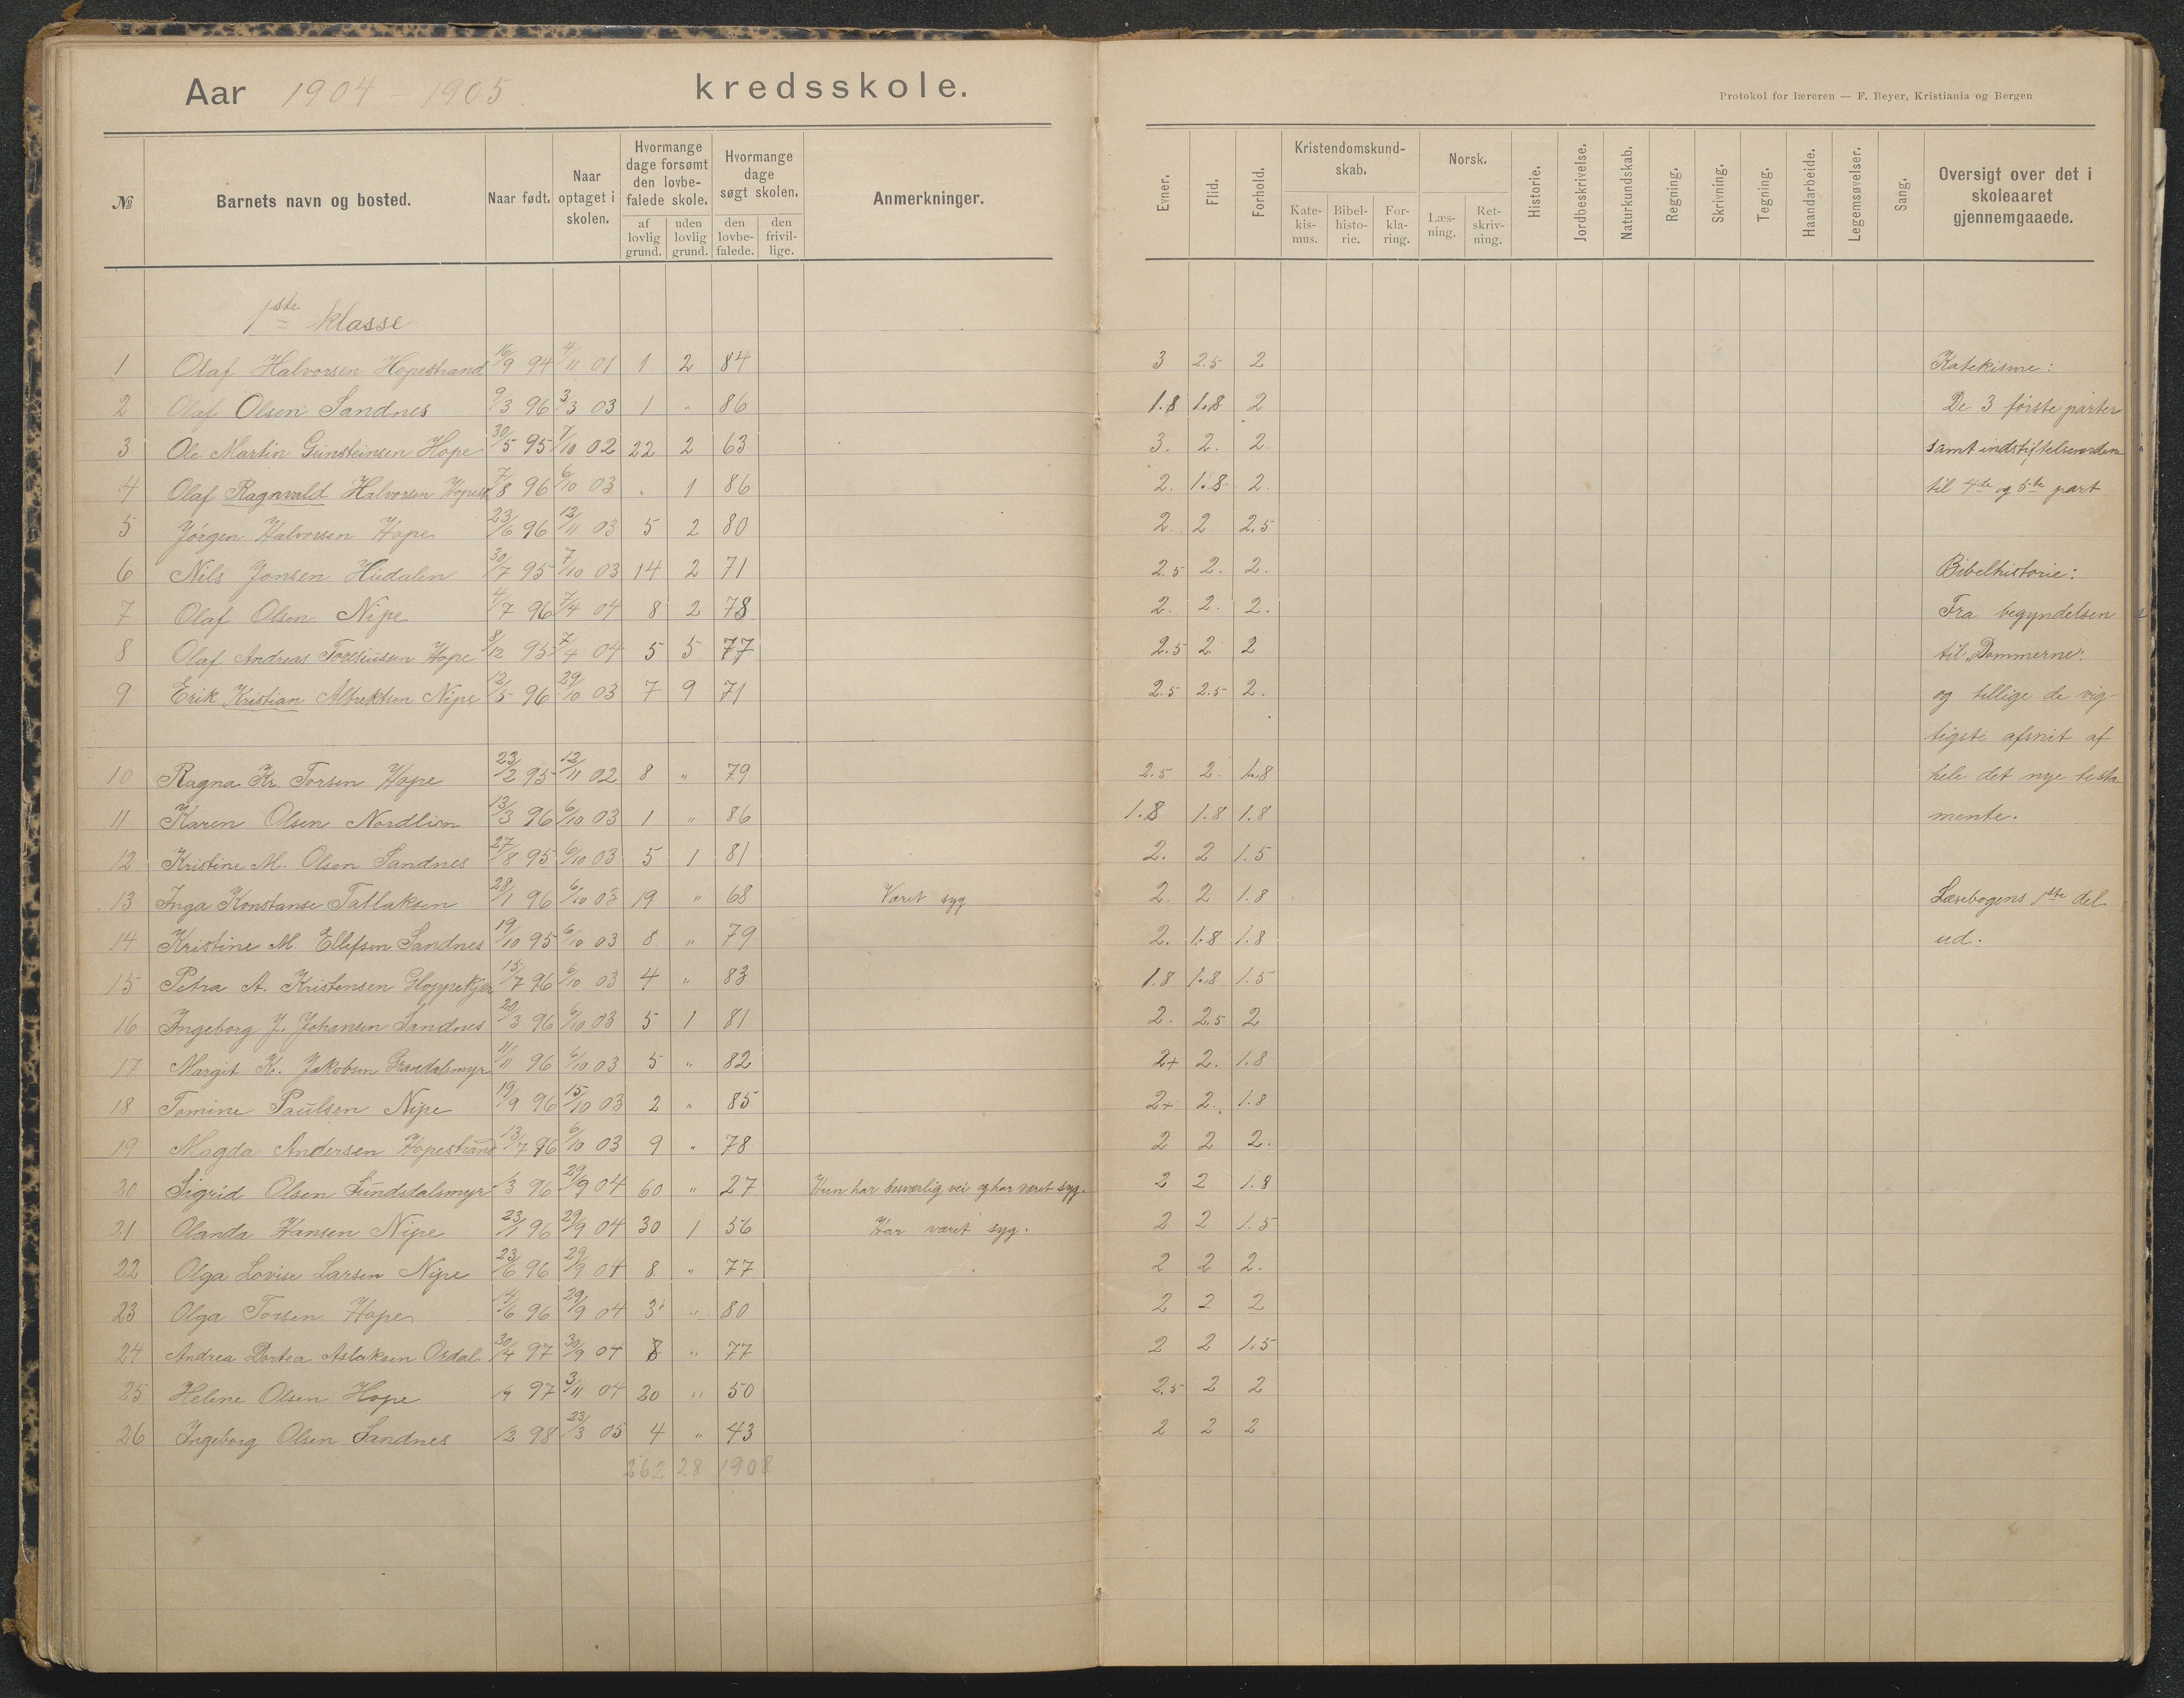 Aar 1904 - 1905. kredsskole.
Protokol for læreren — F. Beyer, Kristiania og Bergen
№ Barnets navn og bosted. Naar født. Naar optaget i skolen. Hvormange dage forsømt den lovbefalede skole. af lovlig grund. uden lovlig grund. Hvormange dage søgt skolen. den lovbefalede. den frivillige. Anmerkninger. Evner. Flid. Forhold. Kristendomskundskab. Katekismus. Bibelhistorie. Forklaring. Norsk. Læsning. Retskrivning. Historie. Jordbeskrivelse. Naturkundskab. Regning. Skrivning. Tegning. Haandarbeide. Legemsøvelser. Sang. Oversigt over det i skoleaaret gjennemgaaede.
1ste klasse
1 Olaf Halvorsen Hopestrand 16/9 94 4/11 01 1 2 84 3 2.5 2 Katekisme:
2 Olaf Olsen Sandnes 9/3 96 3/3 03 1 " 86 1.8 1.8 2 De 3 første parter
3 Ole Martin Gunsteinsen Hope 30/5 95 7/10 02 22 2 63 3. 2. 2 samt indstiftelsesordene
4 Olaf Ragnvald Halvorsen Hopest 7/8 96 6/10 03 . 1 86 2. 1.8 2. til 4de og 5te part
5 Jørgen Halvorsen Hope 23/6 96 12/11 03 5 2 80 2. 2 2.5
6 Nils Jonsen Hudalen 30/7 95 7/10 03 14 2 71 2.5 2. 2. Bibelhistorie:
7 Olaf Olsen Nipe 4/7 96 7/4 04 8 2 78 2. 2. 2. Fra begyndelsen
8 Olaf Andreas Hope 8/12 95 7/4 04 5 5 77 2.5 2. 2 til "Dommerne".
9 Erik Kristian Albrektsen Nipe 12/5 96 29/10 03 7 9 71 2.5 2.5 2. og tillige de vig-
tigste afsnit af
10 Ragna Kr. Torsen Hope 23/2 95 12/11 02 8 " 79 2.5 2. 1.8 hele det nye testa
11 Karen Olsen Nordlien 13/3 96 6/10 03 1 " 86 1.8 1.8 1.8 mente.
12 Kristine M. Olsen Sandnes 27/8 95 6/10 03 5 1 81 2. 2 1.5
13 Inga Konstanse Tallaksen 28/1 96 6/10 03 19 " 68 Været syg 2. 2 1.8 Læsebogens 1ste del
14 Kristine M. Ellefsen Sandnes 19/10 95 6/10 03 8 " 79 2. 1.8 1.8 ud.
15 Petra A. Kristensen Gloppekjær 15/7 96 6/10 03 4 " 83 1.8 1.8 1.5
16 Ingeborg J. Johansen Sandnes 20/3 96 6/10 03 5 1 81 2. 2.5 2
17 Margit K. Jakobsen 11/11 96 6/10 03 5 " 82 2+ 2. 1.8
18 Tomine Paulsen Nipe 19/9 96 15/10 03 2 " 85 2+ 2. 1.8
19 Magda Andersen Hopestrand 13/7 96 6/10 03 9 " 78 2 2 2.
20 Sigrid Olsen Lundsdalsmyr /3 96 29/9 04 60 " 27 Hun har besværlig vei og har været syg. 2 2 1.8
21 Olanda Hansen Nipe 23/1 96 29/9 04 30 1 56 Har været syg. 2 2 1.5
22 Olga Lovise Larsen Nipe 23/6 96 29/9 04 8 " 77 2 2 2.
23 Olga Torsen Hope 14/6 96 29/9 04 3 " 80 2 2 2
24 Andrea Dortea Aslaksen Ordal 30/4 97 30/9 04 8 " 77 2 2 1.5
25 Helene Olsen Hope /9 97 3/11 04 20 " 50 2.5 2 2
26 Ingeborg Olsen Sandnes /2 98 23/3 05 4 " 43 2 2 2
262 28 1908